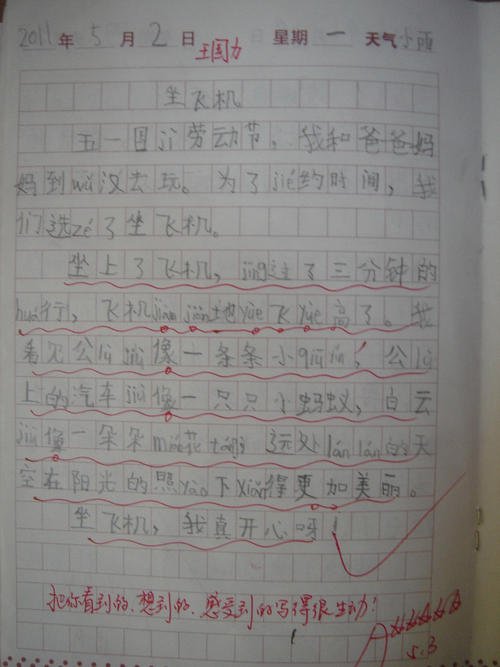 2011年5月2日 星期一 天气小雨
王国力
坐飞机
五一国jì劳动节，我和爸爸妈
妈到wǔ汉去玩。为了jié约时间，我
们选zé了坐飞机。
坐上了飞机，jīng过了三分钟的
huá行，飞机jiàn jiàn地yuè飞yuè高了。我
看见公lù jiù像一条条小qiū yǐn，公lù
上的汽车jiù像一只只小蚂蚁，白云
jiù像一朵朵mián花táng，远处lán lán的天
空在阳光的照yào下xiǎn得更加美丽。
坐飞机，我真开心呀！
把你看到的、想到的、感受到的写得很生动！
5.3